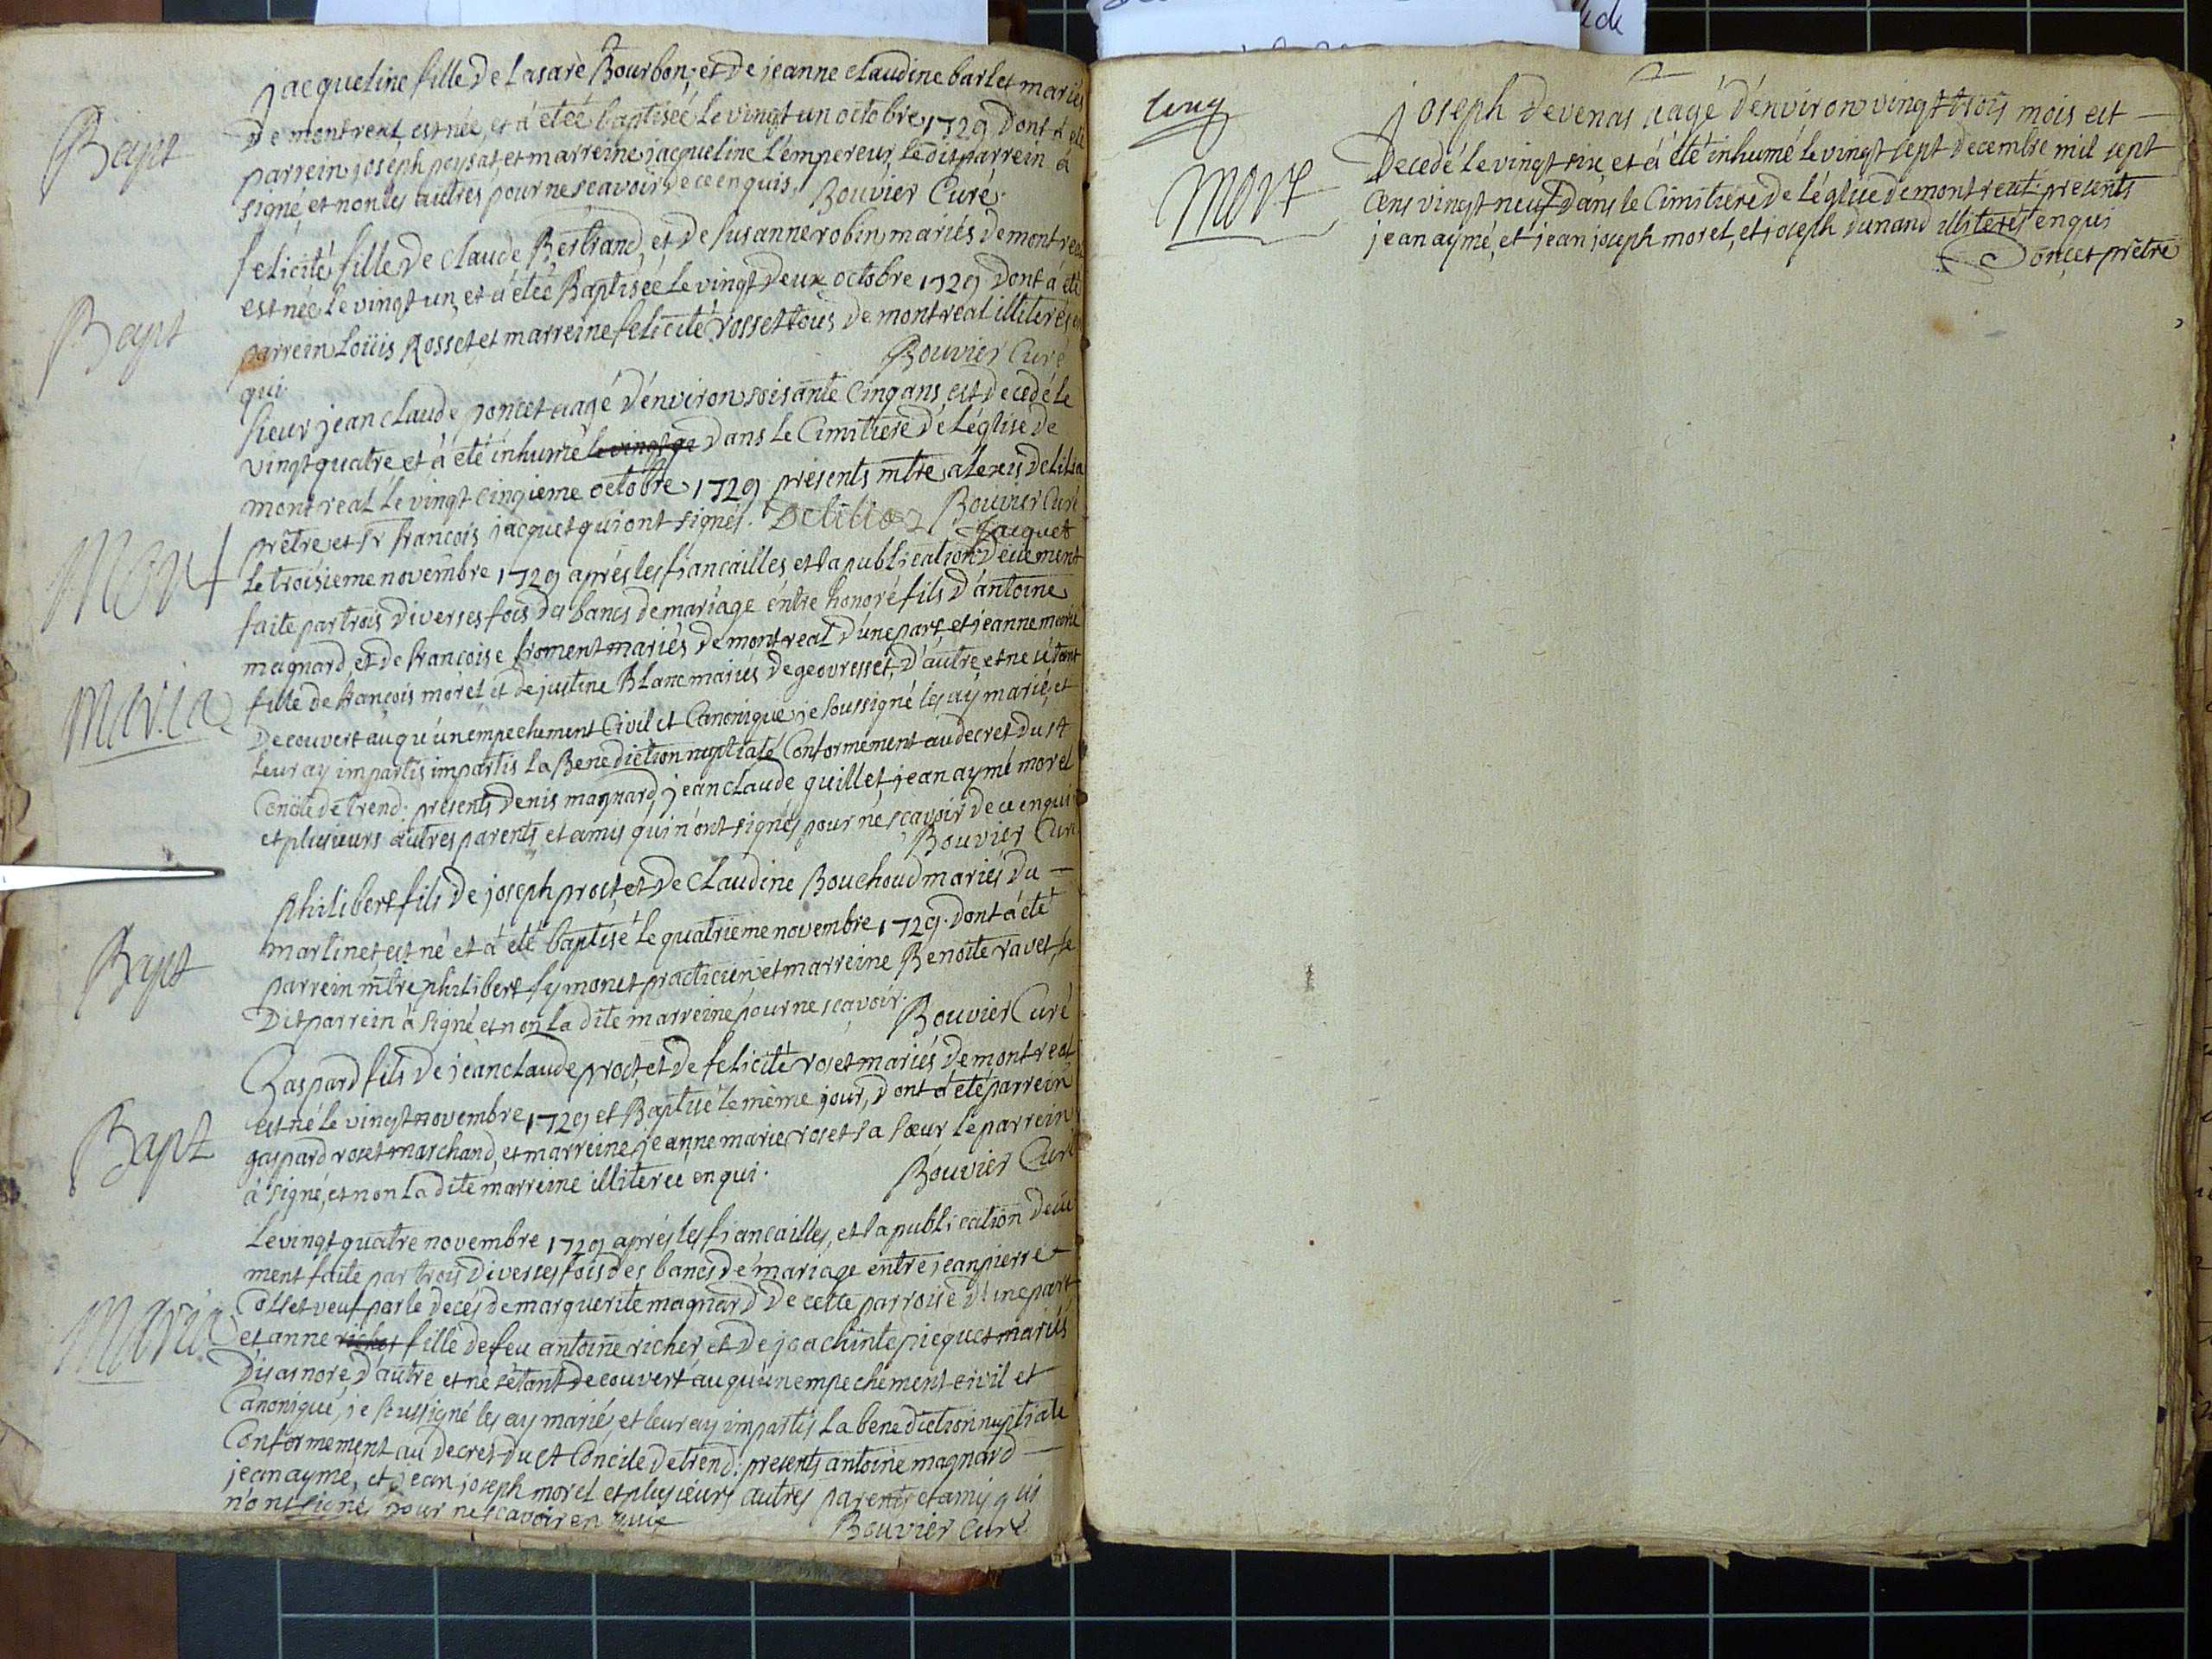 Bapt
jacqueline fille de Lasare Bourbon, et de jeanne claudine barlet mariés
de montreal, est née, et à étée baptisée le vingt un octobre 1729 dont à été
parrein joseph peysat, et marreine jacqueline l'empereur, le dit parrein à
signé, et non les autres pour ne scavoir de ce enquis. Bouvier Curé.
Bapt
felicité fille de claude Bertrand, et de susanne robin mariés de montreal
est née le vingt un, et à étée Baptisée le vingt deux octobre 1729 dont à été
parrein Loüis Rosset et marreine felicité rosset tous de montreal illiterés en
qui
Bouvier Curé
Mort
sieur jean claude poncet aagé d'environ soisante cinq ans, est decedé le
vingt quatre et à été inhumé dans le Cimitiere de l'église de
montreal le vingt cinqieme octobre 1729 présents mtre alexis
prêtre et sr francois jacquet qui ont signés. Bouvier Curé
Jacquet
Maria
Le troisieme novembre 1729 après les fiancailles et la publication deüement
faite par trois diverses fois des bancs de mariage entre honoré fils d'antoine
magnard, et de francoise froment mariés de montreal d'une part, et jeanne marie
fille de françois morel et de justine Blanc mariés de geovresset, d'autre, et ne s'étant
decouvert auqu'un empechement Civil et Canonique, je soussigné les ay marié, et
leur ay impartis impartis la Benediction nuptiale Conformement au decret du st
Concile de trend. présents denis magnard, jean claude guillet, jean aymé morel
et plusieurs autres parents, et amis qui n'ont signés pour ne scavoir de ce enqui
Bouvier Curé
Bapt
philibert fils de joseph prost, et de claudine Bouchoud mariés du
martinet est né et à été baptisé le quatrieme novembre 1729. dont à été
parrein mtre philibert symonet practicien, et marreine Benoite ravet, le
dit parrein à signé et non la dite marreine pour ne scavoir. Bouvier Curé
Bapt
Gaspard fils de jean claude prost, et de felicité roset mariés de montreal
est né le vingt novembre 1729 et Baptisé le même jour, dont à été parrein
gaspard roset marchand, et marreine jeanne marie roset sa sœur le parrein
à signé, et non la dite marreine illiteree enqui. Bouvier Curé
Maria
Le vingt quatre novembre 1729 après les fiancailles, et la publication deüe
ment faite par trois diverses fois des bancs de mariage entre jean pierre
Collet veuf par le decés de marguerite magnard de cette parroisse d'une part
et anne richer fille de feu antoine richer et de jeachinte piequet mariés
d'isarnore d'autre et ne s'étant decouvert auqu'un empechement civil et
Canonique, je soussigné les ay marié, et leur ay impartis la benediction nuptiale
Conformement au decret du st Concile de trend: présents antoine magnard
jean aymé, et jean joseph morel et plusieurs autres parents et amis qui
n'ont signé pour ne scavoir en
Bouvier Curé
Mort
joseph devenas aagé d'environ vingt trois mois est
decedé le vingt six, et à été inhumé le vingt sept decembre mil sept
cens vingt neuf dans le Cimitiere de l'église de montreal. présents
jean aymé, et jean joseph morel, et joseph dunand illiterés enqui
Doncet prêtre